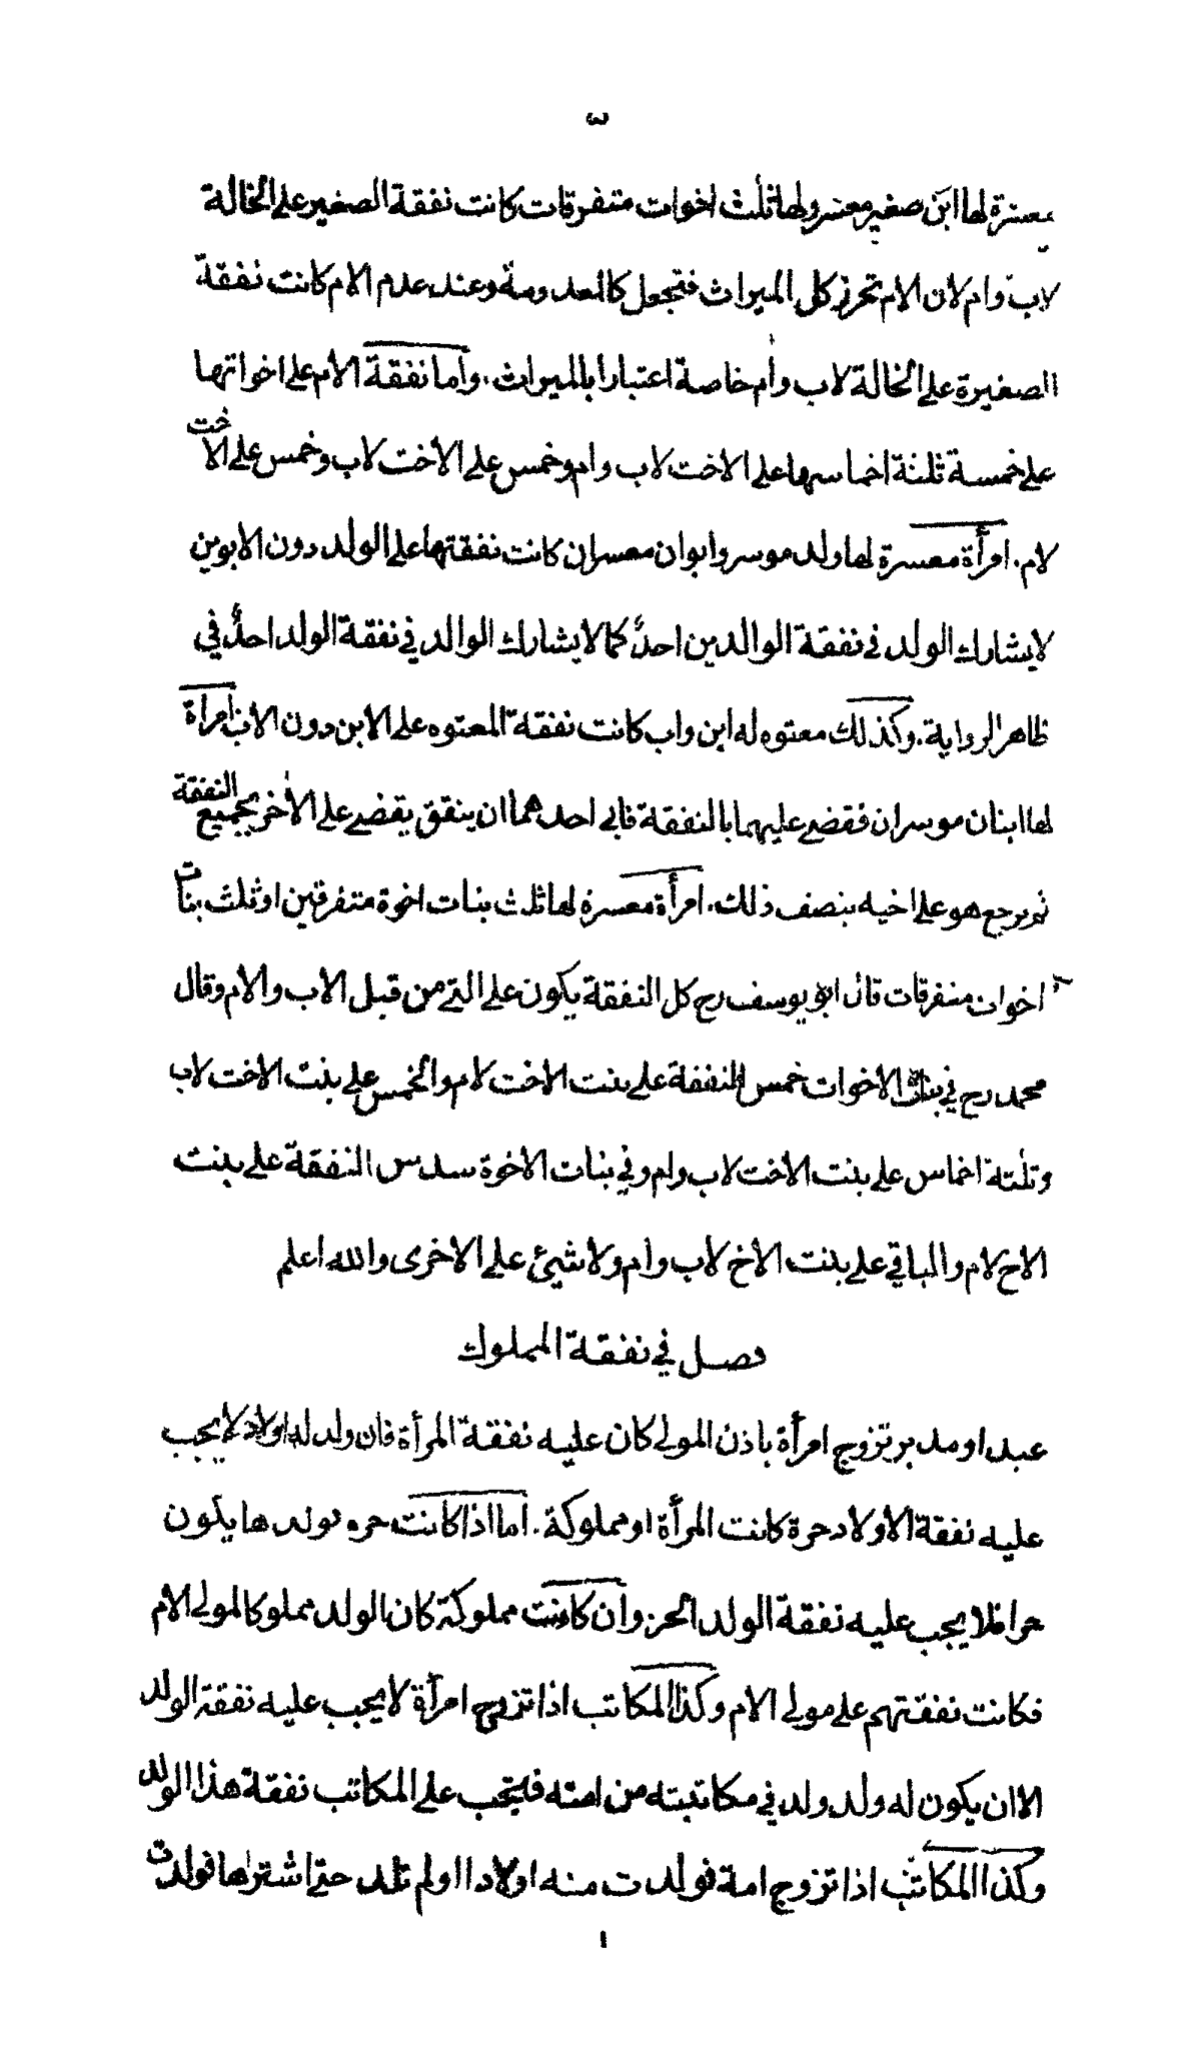 ٣
معسرة لها ابن صغير معسر ولها ثلث اخوات متفرقات كانت نفقة الصغير على الخالة
لاب وام لان الام تحرز كل الميراث فتجعل كالمعدومة وعند عدم الام كانت نفقة
الصغيرة على الخالة لاب وأم خاصة اعتبارا بالميراث. وأما نفقة الام على اخواتها
على خمسة ثلثة اخماسها على الاخت لاب وام وخمس على الاخت لاب وخمس على الاخت
لام. امرأة معسرة لها ولد موسر وابوان معسران كانت نفقتها على الولد دون الابوين
لا يشارك الولد في نفقة الوالدين احدٌ كما لا يشارك الوالد في نفقة الولد احدٌ في
ظاهر الرواية. وكذلك معتوه له ابن واب كانت نفقة المعتوه على الابن دون الاب امرأة
لها ابنان موسران فقضى عليهما بالنفقة فابى احدهما ان ينفق يقضى على الأخر بجميع النفقة
ثم يرجع هو على اخيه بنصف ذلك. امرأة معسرة لها ثلث بنات اخوة متفرقين او ثلث بنات
اخوات متفرقات قال ابو يوسف رح كل النفقة يكون على التى من قبل الاب والام وقال
محمد رح في بنات الاخوات خمس النفقة على بنت الاخت لام والخمس على بنت الاخت لاب
وثلثة اخماس على بنت الاخت لاب وام وفي بنات الاخوة سدس النفقة على بنت
الاخ لام والباقي على بنت الاخ لاب وام ولا شيئ على الاخرى والله اعلم
فصل في نفقة المملوك
عبد او مدبر تزوج امرأة باذن المولى كان عليه نفقة المرأة فان ولد له اولاد لا يجب
عليه نفقة الاولاد حرة كانت المرأة او مملوكة. اما اذا كانت حره فولدها يكون
حرا فلا يجب عليه نفقة الولد الحر وان كانت مملوكة كان الولد مملوكا لمولى الام
فكانت نفقتهم على مولى الام وكذا المكاتب اذا تزوج امرأة لا يجب عليه نفقة الولد
الا ان يكون له ولد ولد في مكاتبته من امته فيجب على المكاتب نفقة هذا الولد
وكذا المكاتب اذا تزوج امة فولدت منه اولادا او لم تلد حتى اشتراها فولدت
١